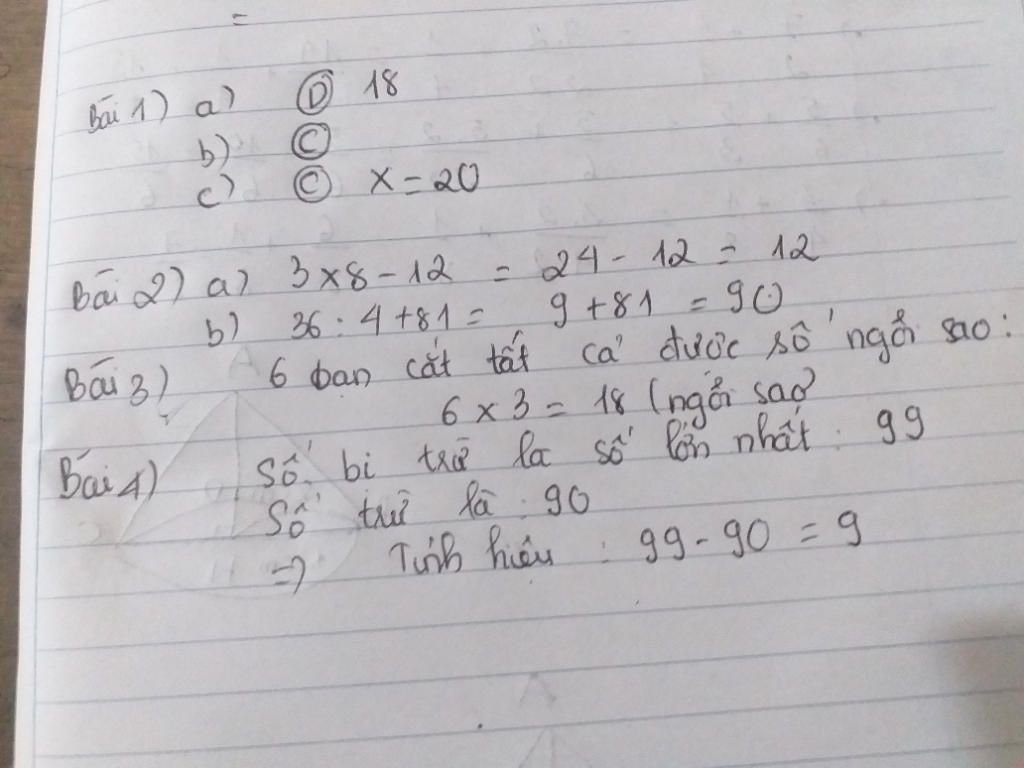 =
Bài 1) a) D 18
b) C
c) C x = 20
Bài 2) a) 3 x 8 - 12 = 24 - 12 = 12
b) 36 : 4 + 81 = 9 + 81 = 90
Bài 3) 6 bạn cắt tất cả được số ngôi sao :
6 x 3 = 18 (ngôi sao)
Bài 4) Số bị trừ là số lớn nhất : 99
Số trừ là : 90
=> Tính hiệu : 99 - 90 = 9